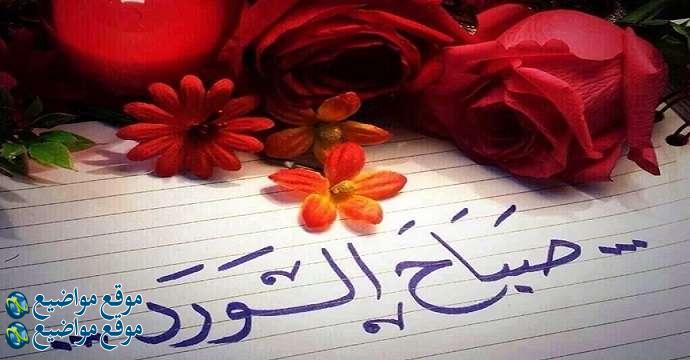 ... صَبَاح الوَرَد ...
موقع مواضيع
موقع مواضيع